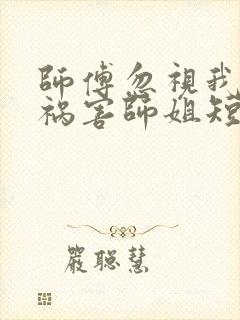 師傅忽視我
禍害師姐短
嚴聰慧